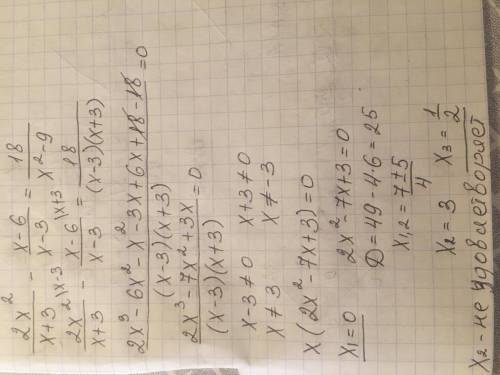 2x²/(x+3) - (x-6)/(x-3) = 18/(x²-9)
2x²\x-3/(x+3) - (x-6)\x+3/(x-3) = 18/((x-3)(x+3))
(2x³-6x²-x²-3x+6x+18-18)/((x-3)(x+3)) = 0
(2x³-7x²+3x)/((x-3)(x+3)) = 0
x-3≠0 x+3≠0
x≠3 x≠-3
x(2x²-7x+3)=0
x₁=0 2x²-7x+3=0
D=49-4·6=25
x₁,₂=(7±5)/4
x₂=3 x₃=1/2
x₂-не удовлетворяет